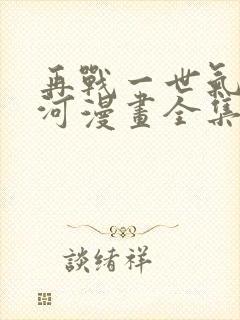 再戰一世氣
河漫畫全集
談緒祥